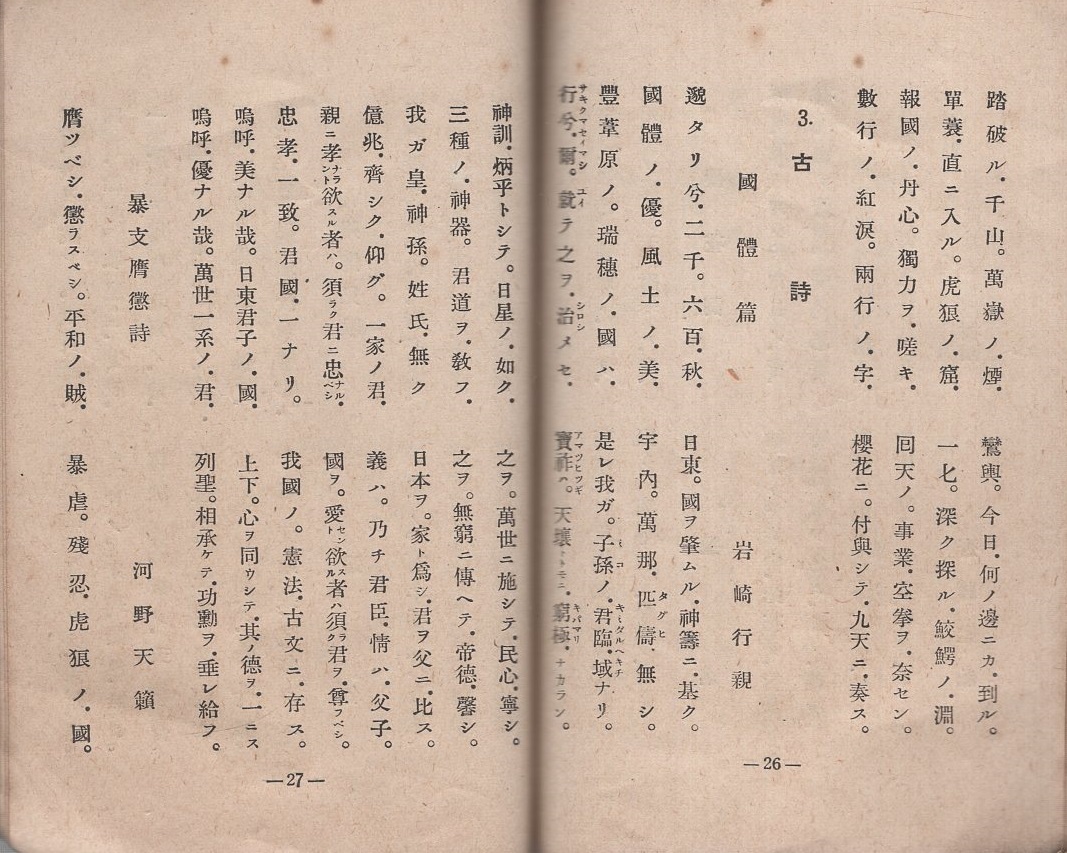 踏破ル.千山。萬嶽ノ.煙.　鸞輿。今日.何ノ邊ニカ.到ル。
單蓑.直ニ入ル。虎狼ノ.窟.　一匕。深ク探ル.鮫鰐ノ.淵。
報國ノ.丹心。獨力ヲ.嗟キ.　囘天ノ。事業.空拳ヲ.奈セン。
數行ノ.紅涙。兩行ノ.字.　櫻花ニ。付與シテ.九天ニ.奏ス。
3. 古詩
國體篇　岩崎行親
邈タリ兮.二千。六百.秋.　日東。國ヲ肇ムル.神籌ニ.基ク.
國體ノ.優。風土ノ.美.　宇內。萬那.匹儔.無シ。
豐葦原ノ。瑞穗ノ.國ハ.　是レ我ガ。子孫ノ.君臨.域ナリ。
行兮.爾。就テ之ヲ.治メセ.　寶祚ハ。天壤トトモニ.窮極.ナカラン。
神訓.炳乎トシテ。日星ノ.如ク.　之ヲ。萬世ニ施シテ.民心.寧シ。
三種ノ.神器。君道ヲ.敎フ.　之ヲ。無窮ニ傳ヘテ.帝德.馨シ。
我ガ皇.神孫。姓氏.無ク　日本ヲ。家ト爲シ.君ヲ父ニ.比ス。
億兆.齊シク.仰グ。一家ノ君.　義ハ。乃チ君臣.情ハ.父子。
親ニ孝ナラント欲スル者ハ。須ラク君ニ忠ナルベシ.　國ヲ。愛セント欲スル者ハ須ラク君ヲ.尊フベシ。
忠孝.一致。君國.一ナリ。　我國ノ。憲法.古文ニ.存ス。
嗚呼.美ナル哉。日東君子ノ.國.　上下。心ヲ同ウシテ.其ノ德ヲ.一ニス
嗚呼.優ナル哉。萬世一系ノ.君.　列聖。相承ケテ.功勳ヲ.垂レ給フ。
暴支膺懲詩　河野天籟
膺ツベシ.懲ラスベシ。平和ノ.賊.　暴虐。殘忍.虎狼ノ.國。
—26—
—27—